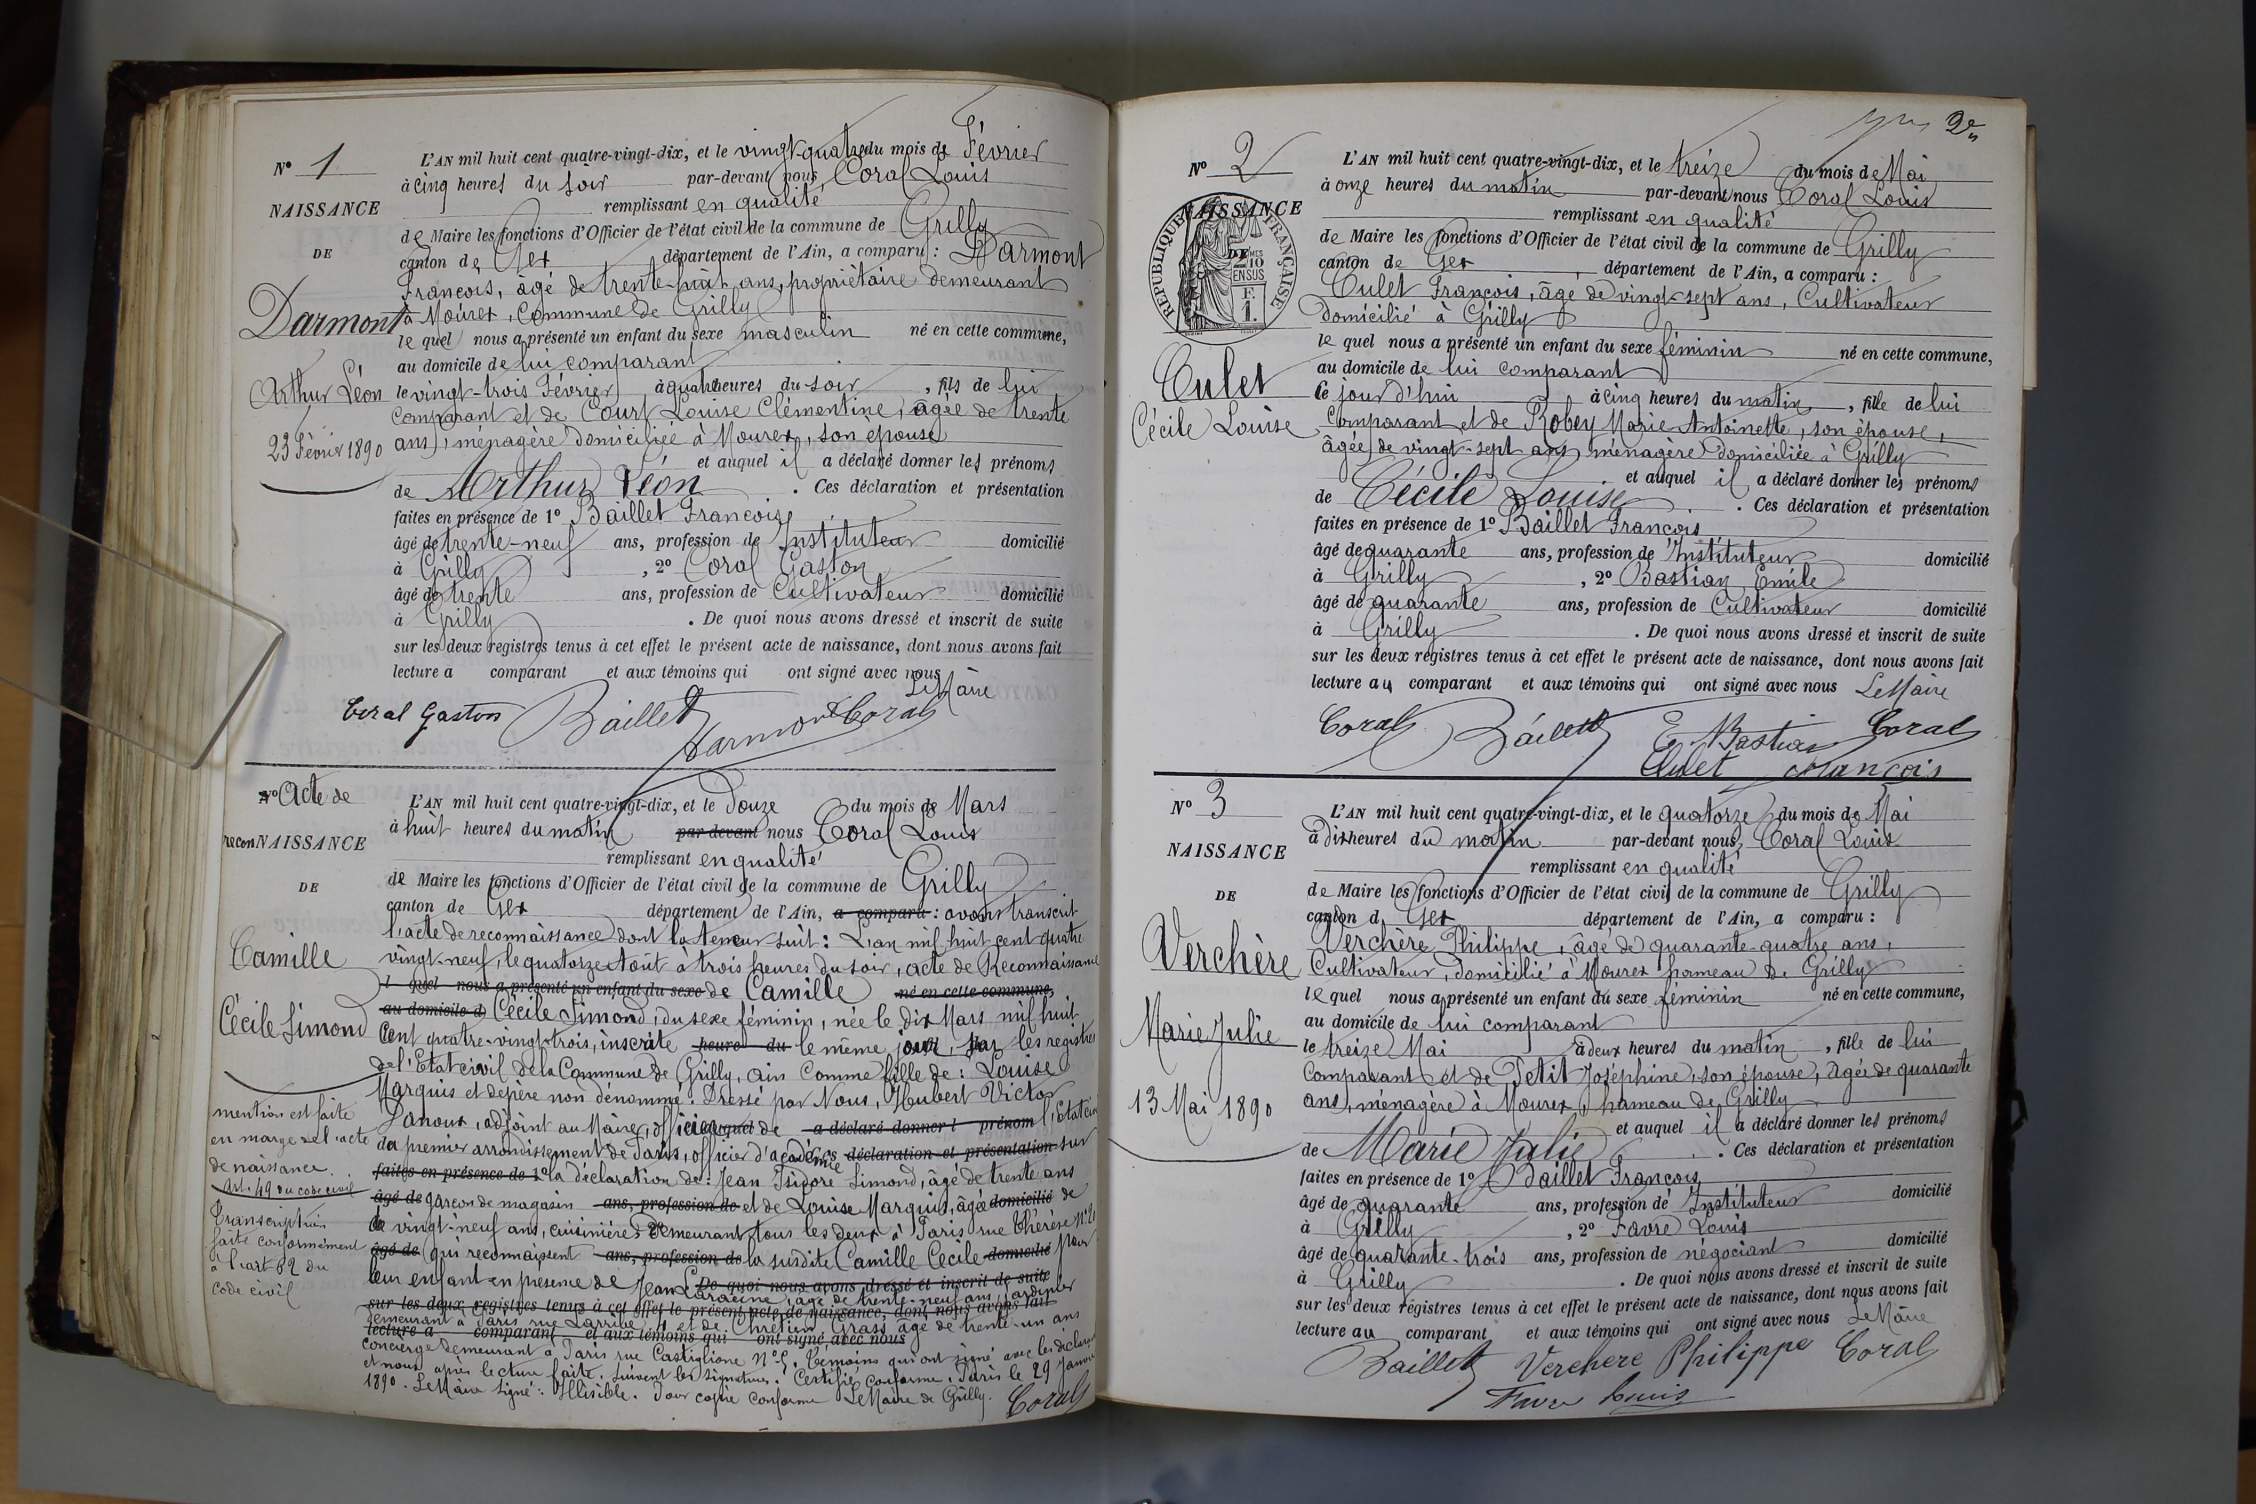 N° 1
NAISSANCE
DE
Darmont
Arthur Léon
23 Février 1890
L'AN mil huit cent quatre-vingt-dix, et le vingt-quatre du mois de Février
à cinq heures du soir par-devant nous, Coral Louis
remplissant en qualité
de Maire les fonctions d'Officier de l'état civil de la commune de Grilly
canton de Gex département de l'Ain, a comparu : Darmont
François, âgé de trente-huit ans, propriétaire demeurant
à Mourex, Commune de Grilly
le quel nous a présenté un enfant du sexe masculin né en cette commune,
au domicile de lui comparant
le vingt-trois Février à quatre heures du soir, fils de lui
comparant et de Court Louise Clémentine, âgée de trente
ans, ménagère domiciliée à Mourex, son épouse
et auquel il a déclaré donner les prénoms
de Arthur Léon. Ces déclaration et présentation
faites en présence de 1° Baillet François
âgé de trente-neuf ans, profession de Instituteur domicilié
à Grilly, 2° Coral Gaston
âgé de trente ans, profession de Cultivateur domicilié
à Grilly. De quoi nous avons dressé et inscrit de suite
sur les deux registres tenus à cet effet le présent acte de naissance, dont nous avons fait
lecture a comparant et aux témoins qui ont signé avec nous
Le Maire
Coral Gaston Baillet Darmont Coral
N° Acte de
reconNAISSANCE
DE
Camille
Cécile Simond
mention est faite
en marge de l'acte
de naissance.
Art. 49 du code civil
Transcription
faite conformément
à l'art 62 du
code civil
L'AN mil huit cent quatre-vingt-dix, et le douze du mois de Mars
à huit heures du matin par devant nous Coral Louis
remplissant en qualité
de Maire les fonctions d'Officier de l'état civil de la commune de Grilly
canton de Gex département de l'Ain, a comparu : avons transcrit
l'acte de reconnaissance dont la teneur suit : L'an mil huit cent quatre
vingt-neuf, le quatorze Août à trois heures du soir, acte de Reconnaissance
l quel nous a présenté un enfant du sexe de Camille né en cette commune,
au domicile d Cécile Simond, du sexe féminin, née le dix Mars mil huit
Cent quatre-vingt-trois, inscrite heure du le même jour, sur les registres
de l'Etat civil de la Commune de Grilly, Ain comme fille de : Louise
Marquis et de père non dénommé. Dressé par Nous, Hubert Victor
adjoint au Maire, officier uquel de a déclaré donner l prénom l'Etat civil
du premier arrondissement de Paris, officier d'académie déclaration et présentation sur
faites en présence de 1° la déclaration de : Jean Isidore Simond, âgé de trente ans
âgé de garçon de magasin ans, profession de et de Louise Marquis, âgée domicilié de
à vingt-neuf ans, cuisinière, demeurant tous les deux à Paris rue Thérèse N°
âgé de qui reconnaissent ans, profession de la susdite Camille Cécile domicilié pour
leur enfant en présence de Jean De quoi nous avons dressé et inscrit de suite
âgé de trente-neuf ans, jardinier
sur les deux registres tenus à cet effet le présent acte de naissance, dont nous avons fait
demeurant à Paris rue Larribe, 4 et de Chrétien Grass âgé de trente-un ans
lecture a comparant et aux témoins qui ont signé avec nous
concierge demeurant à Paris rue Castiglione N° 5. Témoins qui ont signé avec les déclarants
et nous après lecture faite. Suivent les signatures. Certifié conforme. Paris le 29 Janvier
1890. Le Maire signé : Illisible. Pour copie conforme Le Maire de Grilly. Coral
2e
N° 2
NAISSANCE
DE
RÉPUBLIQUE FRANÇAISE
2/10
EN SUS
F.
1.
Culet
Cécile Louise
L'AN mil huit cent quatre-vingt-dix, et le treize du mois de Mai
à onze heures du matin par-devant nous Coral Louis
remplissant en qualité
de Maire les fonctions d'Officier de l'état civil de la commune de Grilly
canton de Gex, département de l'Ain, a comparu :
Culet François, âgé de vingt-sept ans, Cultivateur
domicilié à Grilly
le quel nous a présenté un enfant du sexe féminin né en cette commune,
au domicile de lui comparant
ce jour d'hui à cinq heures du matin, fille de lui
comparant et de Robey Marie Antoinette, son épouse,
âgée de vingt-sept ans, ménagère domiciliée à Grilly
et auquel il a déclaré donner les prénoms
de Cécile Louise. Ces déclaration et présentation
faites en présence de 1° Baillet François
âgé de quarante ans, profession de Instituteur domicilié
à Grilly, 2° Bastian Emile
âgé de quarante ans, profession de Cultivateur domicilié
à Grilly. De quoi nous avons dressé et inscrit de suite
sur les deux registres tenus à cet effet le présent acte de naissance, dont nous avons fait
lecture au comparant et aux témoins qui ont signé avec nous Le Maire
Coral Baillet E. Bastian Coral
Culet François
N° 3
NAISSANCE
DE
Verchère
Marie Julie
13 Mai 1890
L'AN mil huit cent quatre-vingt-dix, et le quatorze du mois de Mai
à dix heures du matin par-devant nous, Coral Louis
remplissant en qualité
de Maire les fonctions d'Officier de l'état civil de la commune de Grilly
canton d Gex département de l'Ain, a comparu :
Verchère Philippe, âgé de quarante-quatre ans,
Cultivateur, domicilié à Mourex hameau de Grilly
le quel nous a présenté un enfant du sexe féminin né en cette commune,
au domicile de lui comparant
le treize Mai à deux heures du matin, fille de lui
comparant et de Petit Joséphine, son épouse, âgée de quarante
ans, ménagère à Mourex, hameau de Grilly
et auquel il a déclaré donner les prénoms
de Marie Julie. Ces déclaration et présentation
faites en présence de 1° Baillet François
âgé de quarante ans, profession de Instituteur domicilié
à Grilly, 2° Favre Louis
âgé de quarante-trois ans, profession de négociant domicilié
à Grilly. De quoi nous avons dressé et inscrit de suite
sur les deux registres tenus à cet effet le présent acte de naissance, dont nous avons fait
lecture au comparant et aux témoins qui ont signé avec nous Le Maire
Baillet Verchere Philippe Coral
Favre Louis